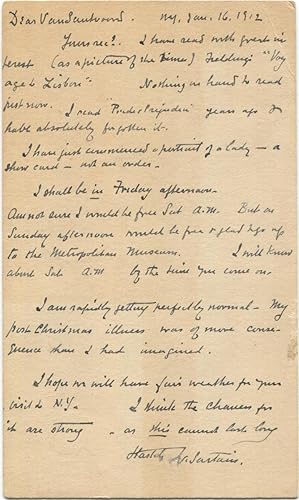 Dear Van Santvoord. NY, Jan. 16. 1912
Yours rec'd. I have read with great in
terest (as a picture of the times) Fieldings "Voy
age to Lisbon". Nothing on hand to read
just now.
I read "Pride & Prejudice" years ago &
have absolutely forgotten it.
I have just commenced a portrait of a lady — a
show card — not an order.
I shall be in Friday afternoon.
Am not sure I would be free Sat A.M. But on
Sunday afternoon would be free & glad to go up
to the Metropolitan Museum. I will know
about Sat A.M by the time you come on.
I am rapidly getting perfectly normal — My
post Christmas illness was of more conse-
quence than I had imagined.
I hope we will have fair weather for your
visit to N.Y. I think the chances for
it are strong — as this cannot last long
Hastily W. Sartain.